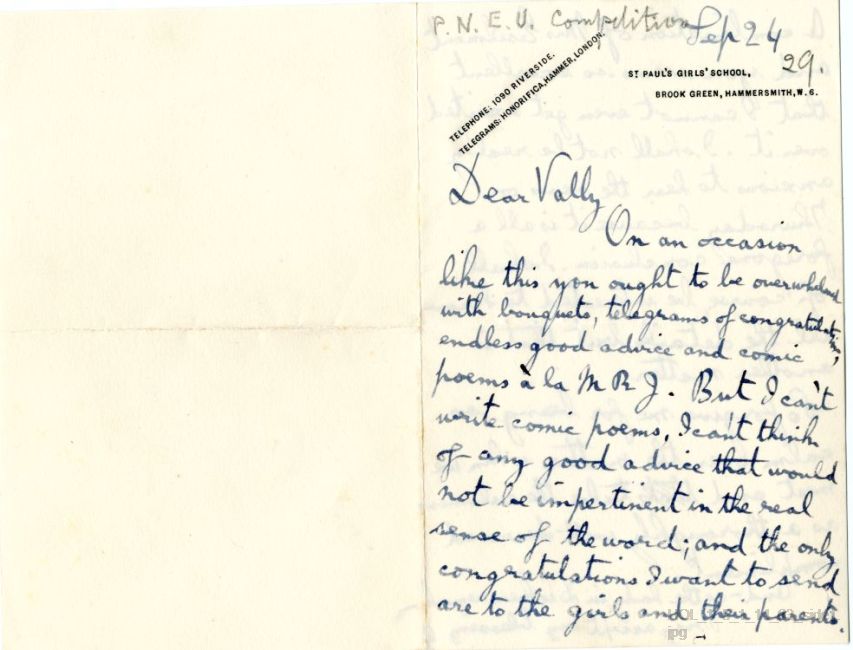 P. N. E. U. Competition
Sep 24
29.
TELEPHONE: 1090 RIVERSIDE.
TELEGRAMS: HONORIFICA, HAMMER, LONDON.
ST PAUL'S GIRLS' SCHOOL,
BROOK GREEN, HAMMERSMITH, W. 6.
Dear Vally
On an occasion
like this you ought to be overwhelmed
with bouquets, telegrams of congratulations,
endless good advice and comic
poems à la M R J. But I can't
write comic poems, I can't think
of any good advice that would
not be impertinent in the real
sense of the word; and the only
congratulations I want to send
are to the girls and their parents.
jpg